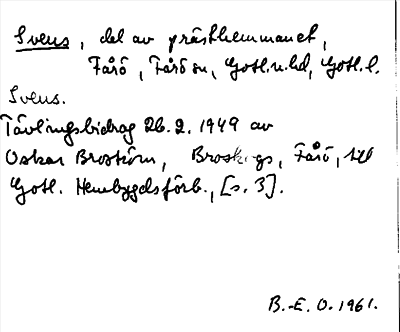 Svens, del av prästhemmanet,
Fårö, Fårö sn, Gotl. n. hd, Gotl. l.
Svens.
Tävlingsbidrag 26.2.1949 av
Oskar Broström, Broskogs, Fårö, till
Gotl. Hembygdsförb., [s. 3].
B.-E. O. 1961.